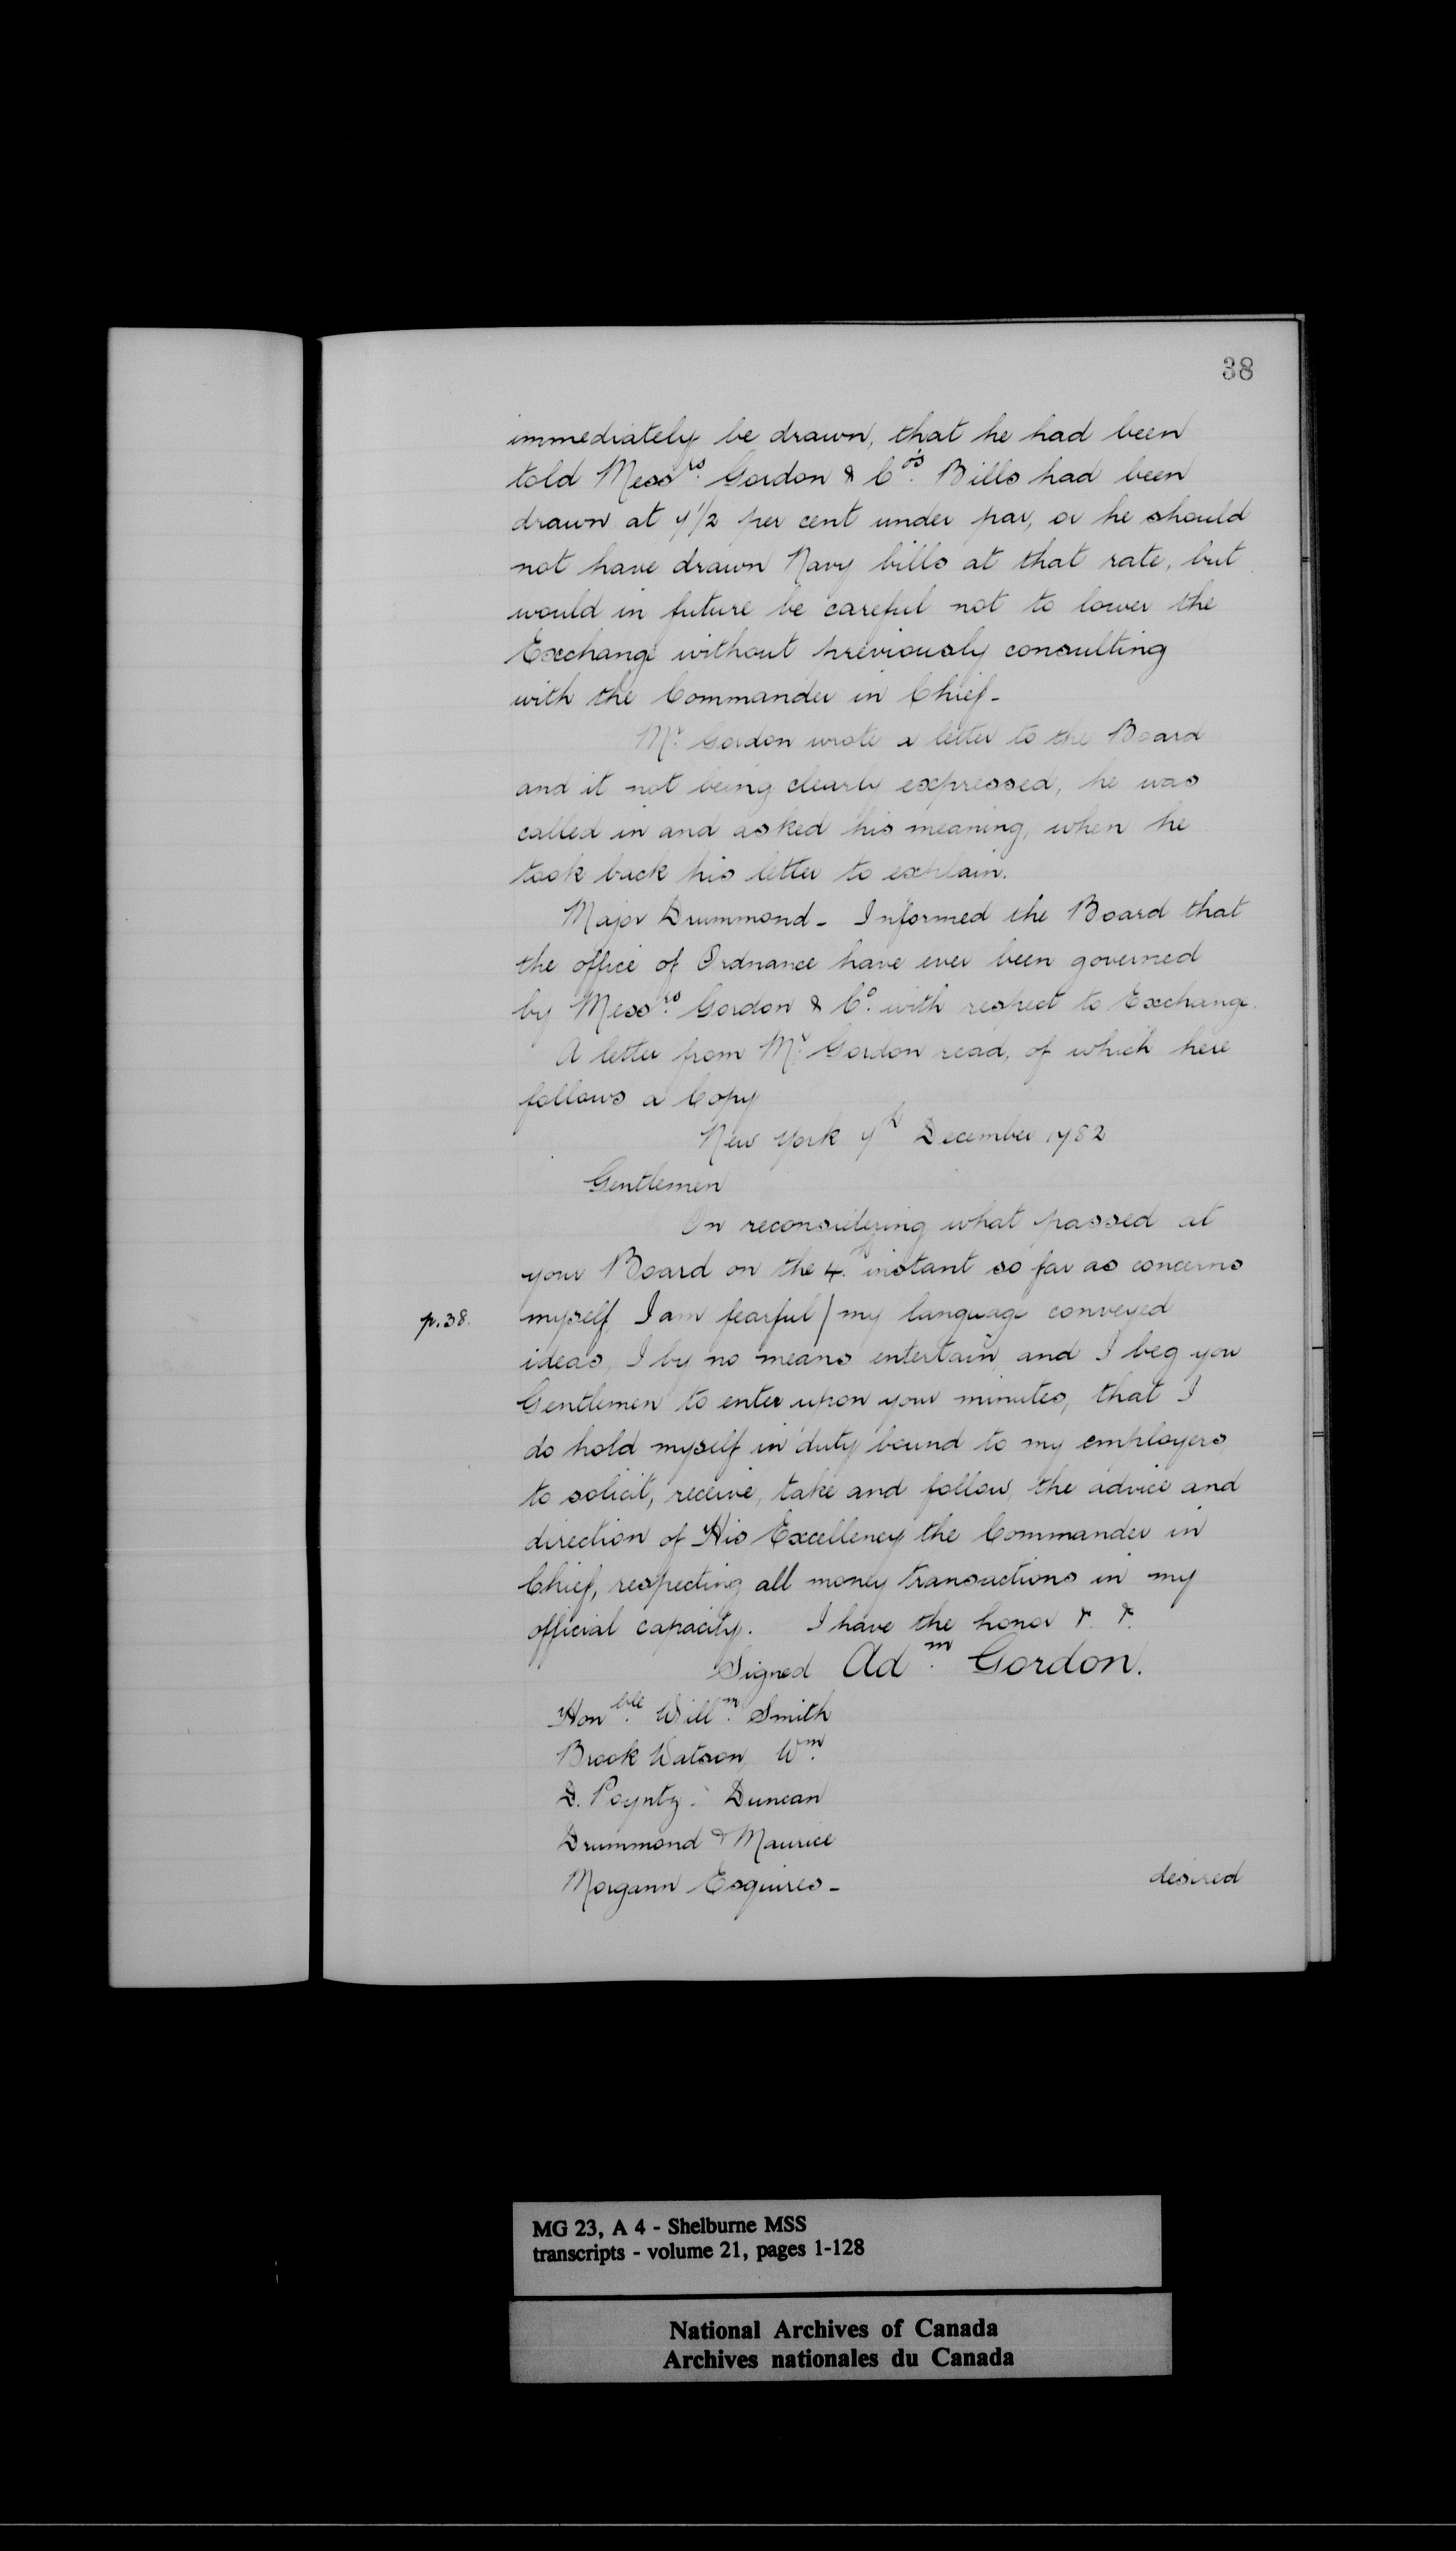 38
immediately be drawn, that he had been
told Mess.rs Gordon & C.o's Bills had been
drawn at 7 1/2 per cent under par, or he should
not have drawn Navy bills at that rate, but
would in future be careful not to lower the
Exchange without previously consulting
with the Commander in Chief -
Mr. Gordon wrote a letter to the Board
and it not being clearly expressed, he was
called in and asked his meaning, when he
took back his letter to explain.
Major Drummond - Informed the Board that
the office of Ordnance have ever been governed
by Mess.rs Gordon & Co. with respect to Exchange.
A letter from Mr. Gordon read, of which here
follows a Copy
New York 7th December 1782
Gentlemen
On reconsidering what passed at
your Board on the 4.th instant so far as concerns
p.38. myself, I am fearful / my language conveyed
ideas, I by no means entertain, and I beg you
Gentlemen to enter upon your minutes, that I
do hold myself in duty bound to my employers,
to solicit, receive, take and follow, the advice and
direction of His Excellency the Commander in
Chief, respecting all money transactions in my
official capacity. I have the honor &. &.
Signed Ad.m Gordon.
Hon.ble Will.m Smith
Brook Watson, W.m
D. Poyntz. Duncan
Drummond & Maurice
Morgann Esquires -
desired
MG 23, A 4 - Shelburne MSS
transcripts - volume 21, pages 1-128
National Archives of Canada
Archives nationales du Canada